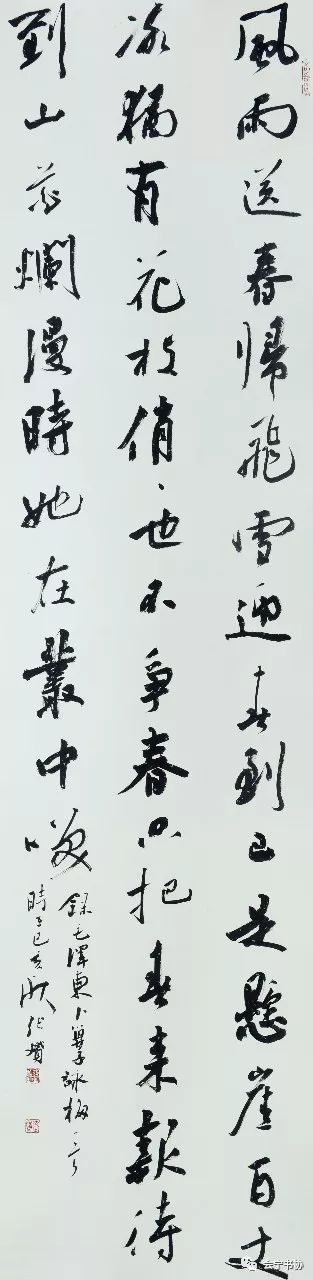 風雨送春歸飛雪迎春到已是懸崖百丈
冰猶有花枝俏、也不爭春只把春來報待
到山花爛漫時她在叢中咲
錄毛澤東卜算子詠梅一首
時己亥秋
云宁书协